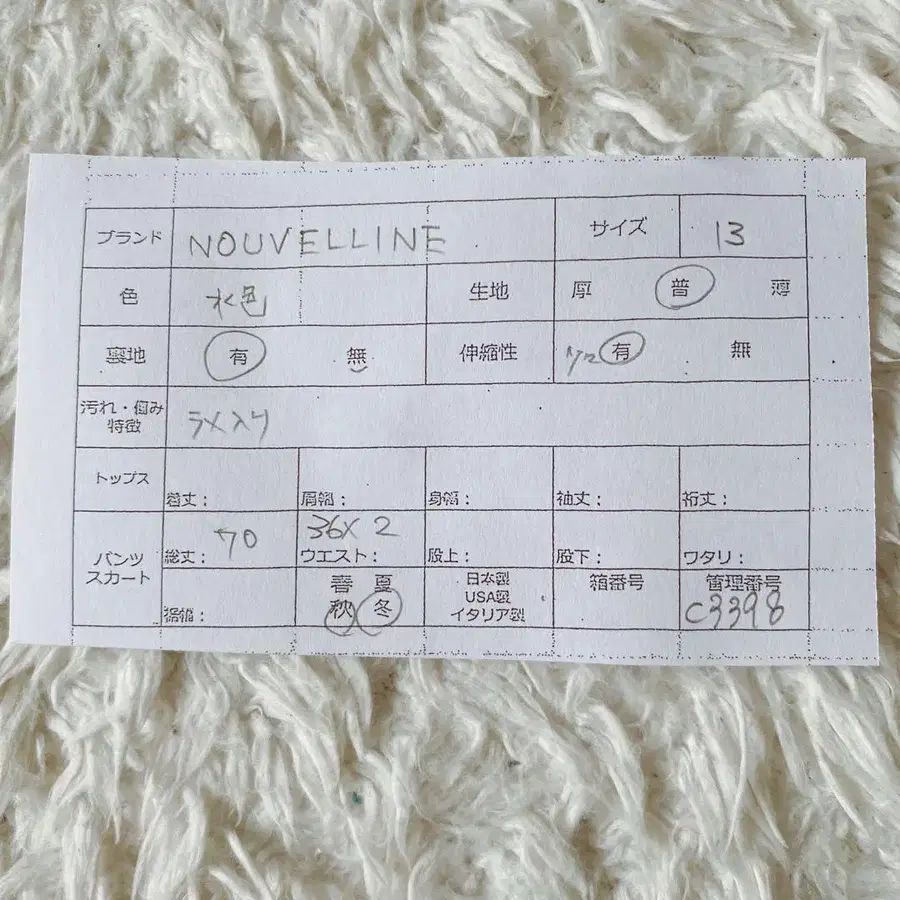 ブランド NOUVELLINE サイズ 13
色 水色 生地 厚 普 薄
裏地 有 無 伸縮性 有 無
汚れ・傷み
特徴 ラメ入り
トップス 着丈： 肩幅： 身幅： 袖丈： 裄丈：
パンツ
スカート
総丈： 70 ウエスト： 36X2 股上： 股下： ワタリ：
裾幅： 春 夏
秋 冬
日本製
USA製
イタリア製
箱番号 管理番号
C3398